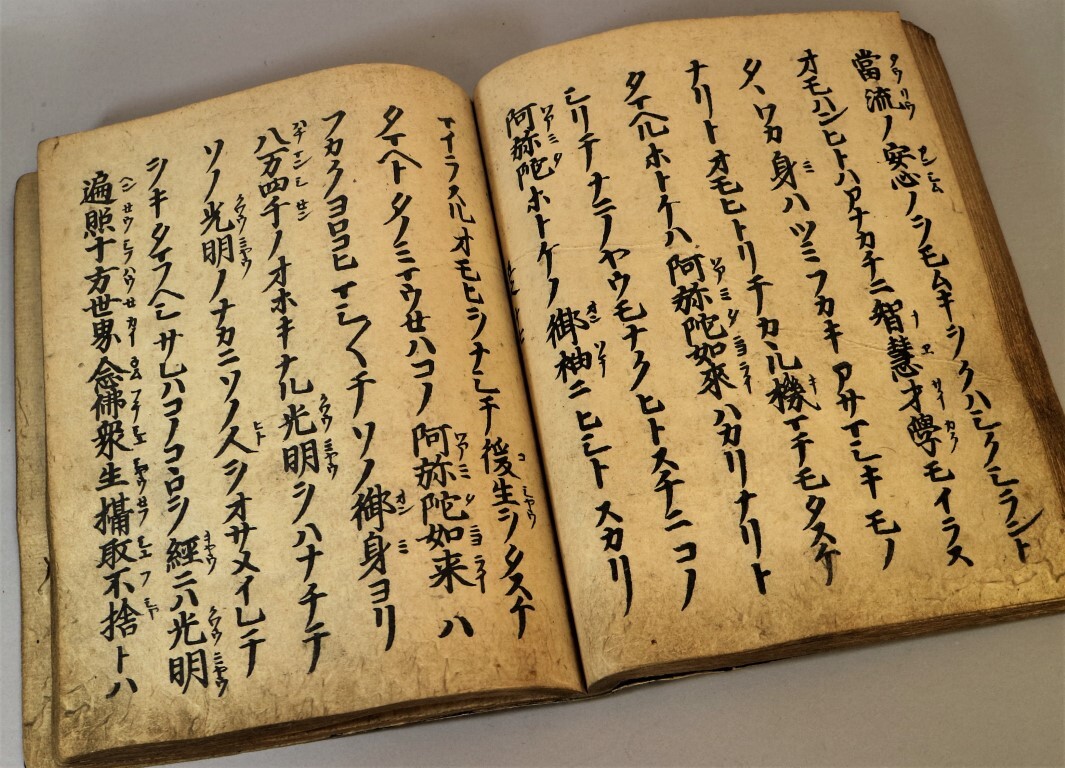 當流ノ安心ノヲモムキヲクハシクシラント
オモハンヒトハアナカチニ智慧才學モイラス
タヽワカ身ハツミフカキアサマシキモノ
ナリトオモヒトリテカヽル機マテモタスケ
タマヘルホトケハ阿弥陀如來ハカリナリト
シリテナニノヤウモナクヒトスチニコノ
阿弥陀ホトケノ御袖ニヒシトスカリ
マイラスルオモヒヲナシテ後生ヲタスケ
タマヘトタノミマウセハコノ阿弥陀如来ハ
フカクヨロコヒマシ〱テソノ御身ヨリ
八万四千ノオホキナル光明ヲハナチテ
ソノ光明ノナカニソノ人ヲオサメイレテ
ヲキタマフヘシサレハコノコヽロヲ經ニハ光明
遍照十方世界念佛衆生攝取不捨トハ